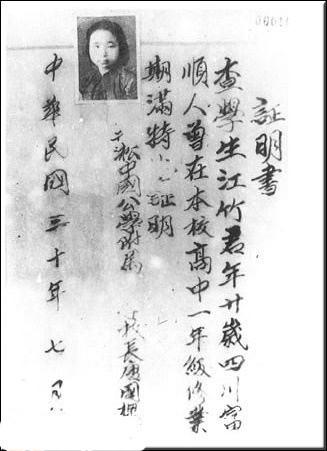 証明書
查學生江竹君年廿歲四川富
順人曾在本校高中一年級修業
期滿特 証明
淞中國公學附
校長
中華民國三十年七月